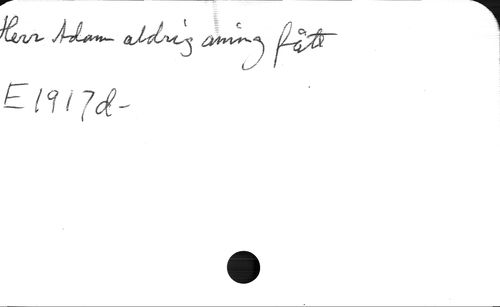 Herr Adam aldrig aning fått
E1917d-